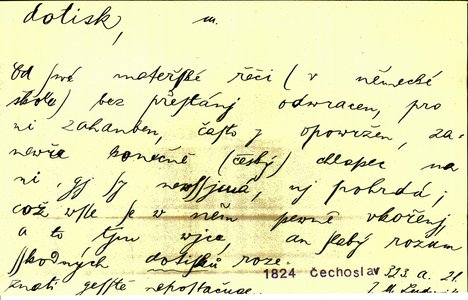 dotisk, m.
Od své mateřské řeči (v německé
škole) bez přestání odwracen, pro
ni zahanben, často y opowržen, za-
newře konečně (český) chlapec na
ni, gj sy newssjmá, nj pohrdá;
což wsse se v něm pewně vkořenj,
a to tjm wjce, an slabý rozum
sskodných dotisků roze-
znati gesstě nepostačuje.
1824 Čechoslav 223 a. 21.